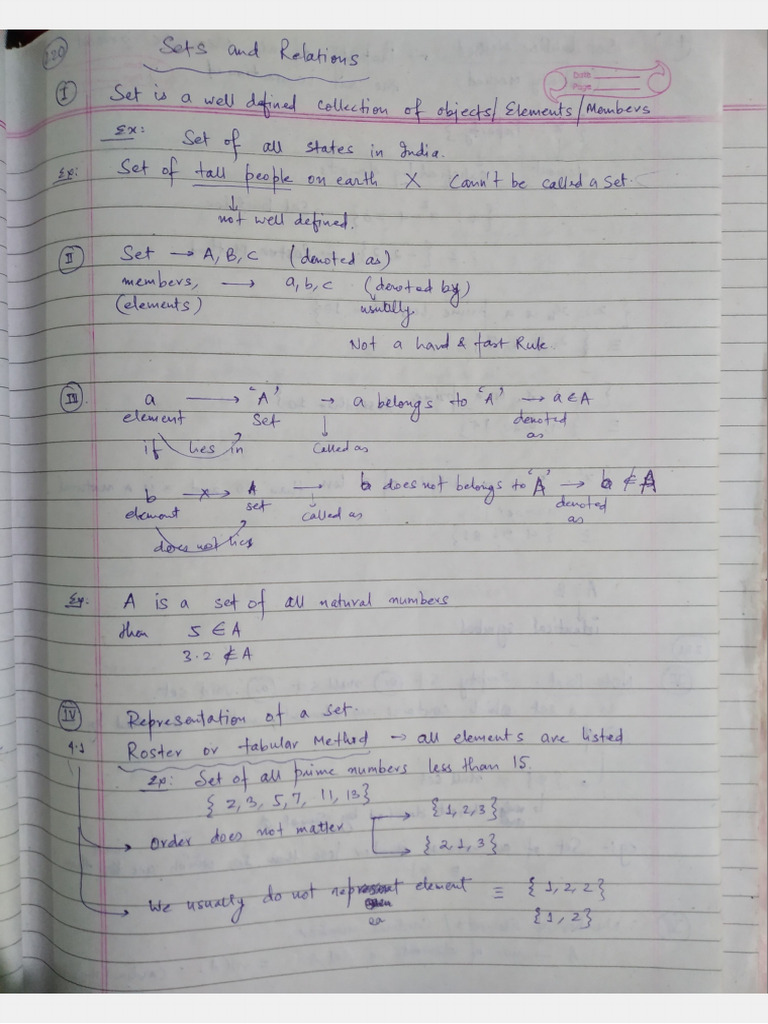 220
Sets and Relations
Date
Page
I Set is a well defined collection of objects/Elements/Members
Ex: Set of all states in India.
Ex: Set of tall people on earth X Cann't be called a Set.
↓
not well defined.
II Set → A, B, C (denoted as)
members, → a, b, c (denoted by)
(elements) usually.
Not a hard & fast Rule.
III. a → 'A' → a belongs to 'A' → a ∈ A
element Set ↓ denoted
if lies in Called as as
b → A → b does not belongs to 'A' → b ∉ A
element set ↓ denoted
called as as
does not lies
Ex: A is a set of all natural numbers
then 5 ∈ A
3.2 ∉ A
IV Representation of a set.
4.1 Roster or tabular Method → all elements are listed
Ex: Set of all prime numbers less than 15.
{ 2, 3, 5, 7, 11, 13}
→ Order does not matter → { 1, 2, 3 }
→ { 2, 1, 3 }
→ We usually do not element ≡ { 1, 2, 2 }
{ 1, 2 }